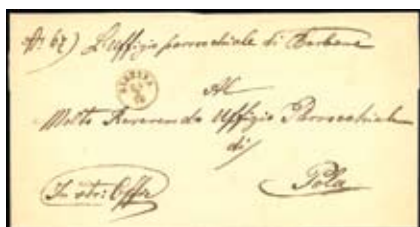 N: 67) L'Uffizio parrochiale di Barbana
Al
Molto Reverendo Uffizio Parrocchiale
di
Pola